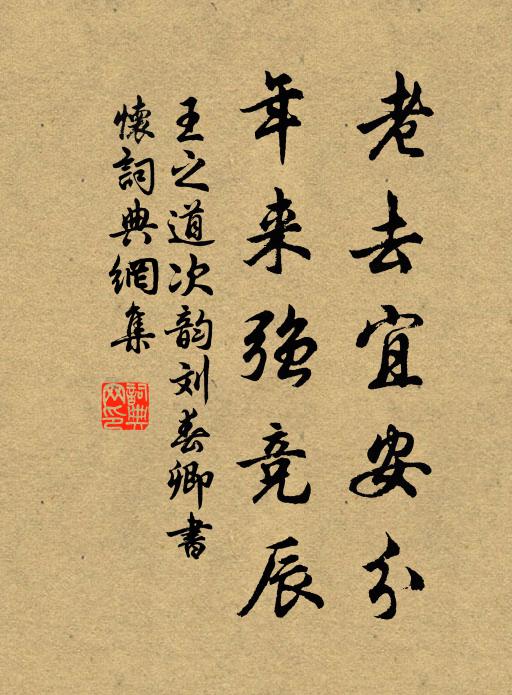 老去宜安分
年来强竞辰
王之道次韵刘春卿書
懷詞典網集
詞典
网印